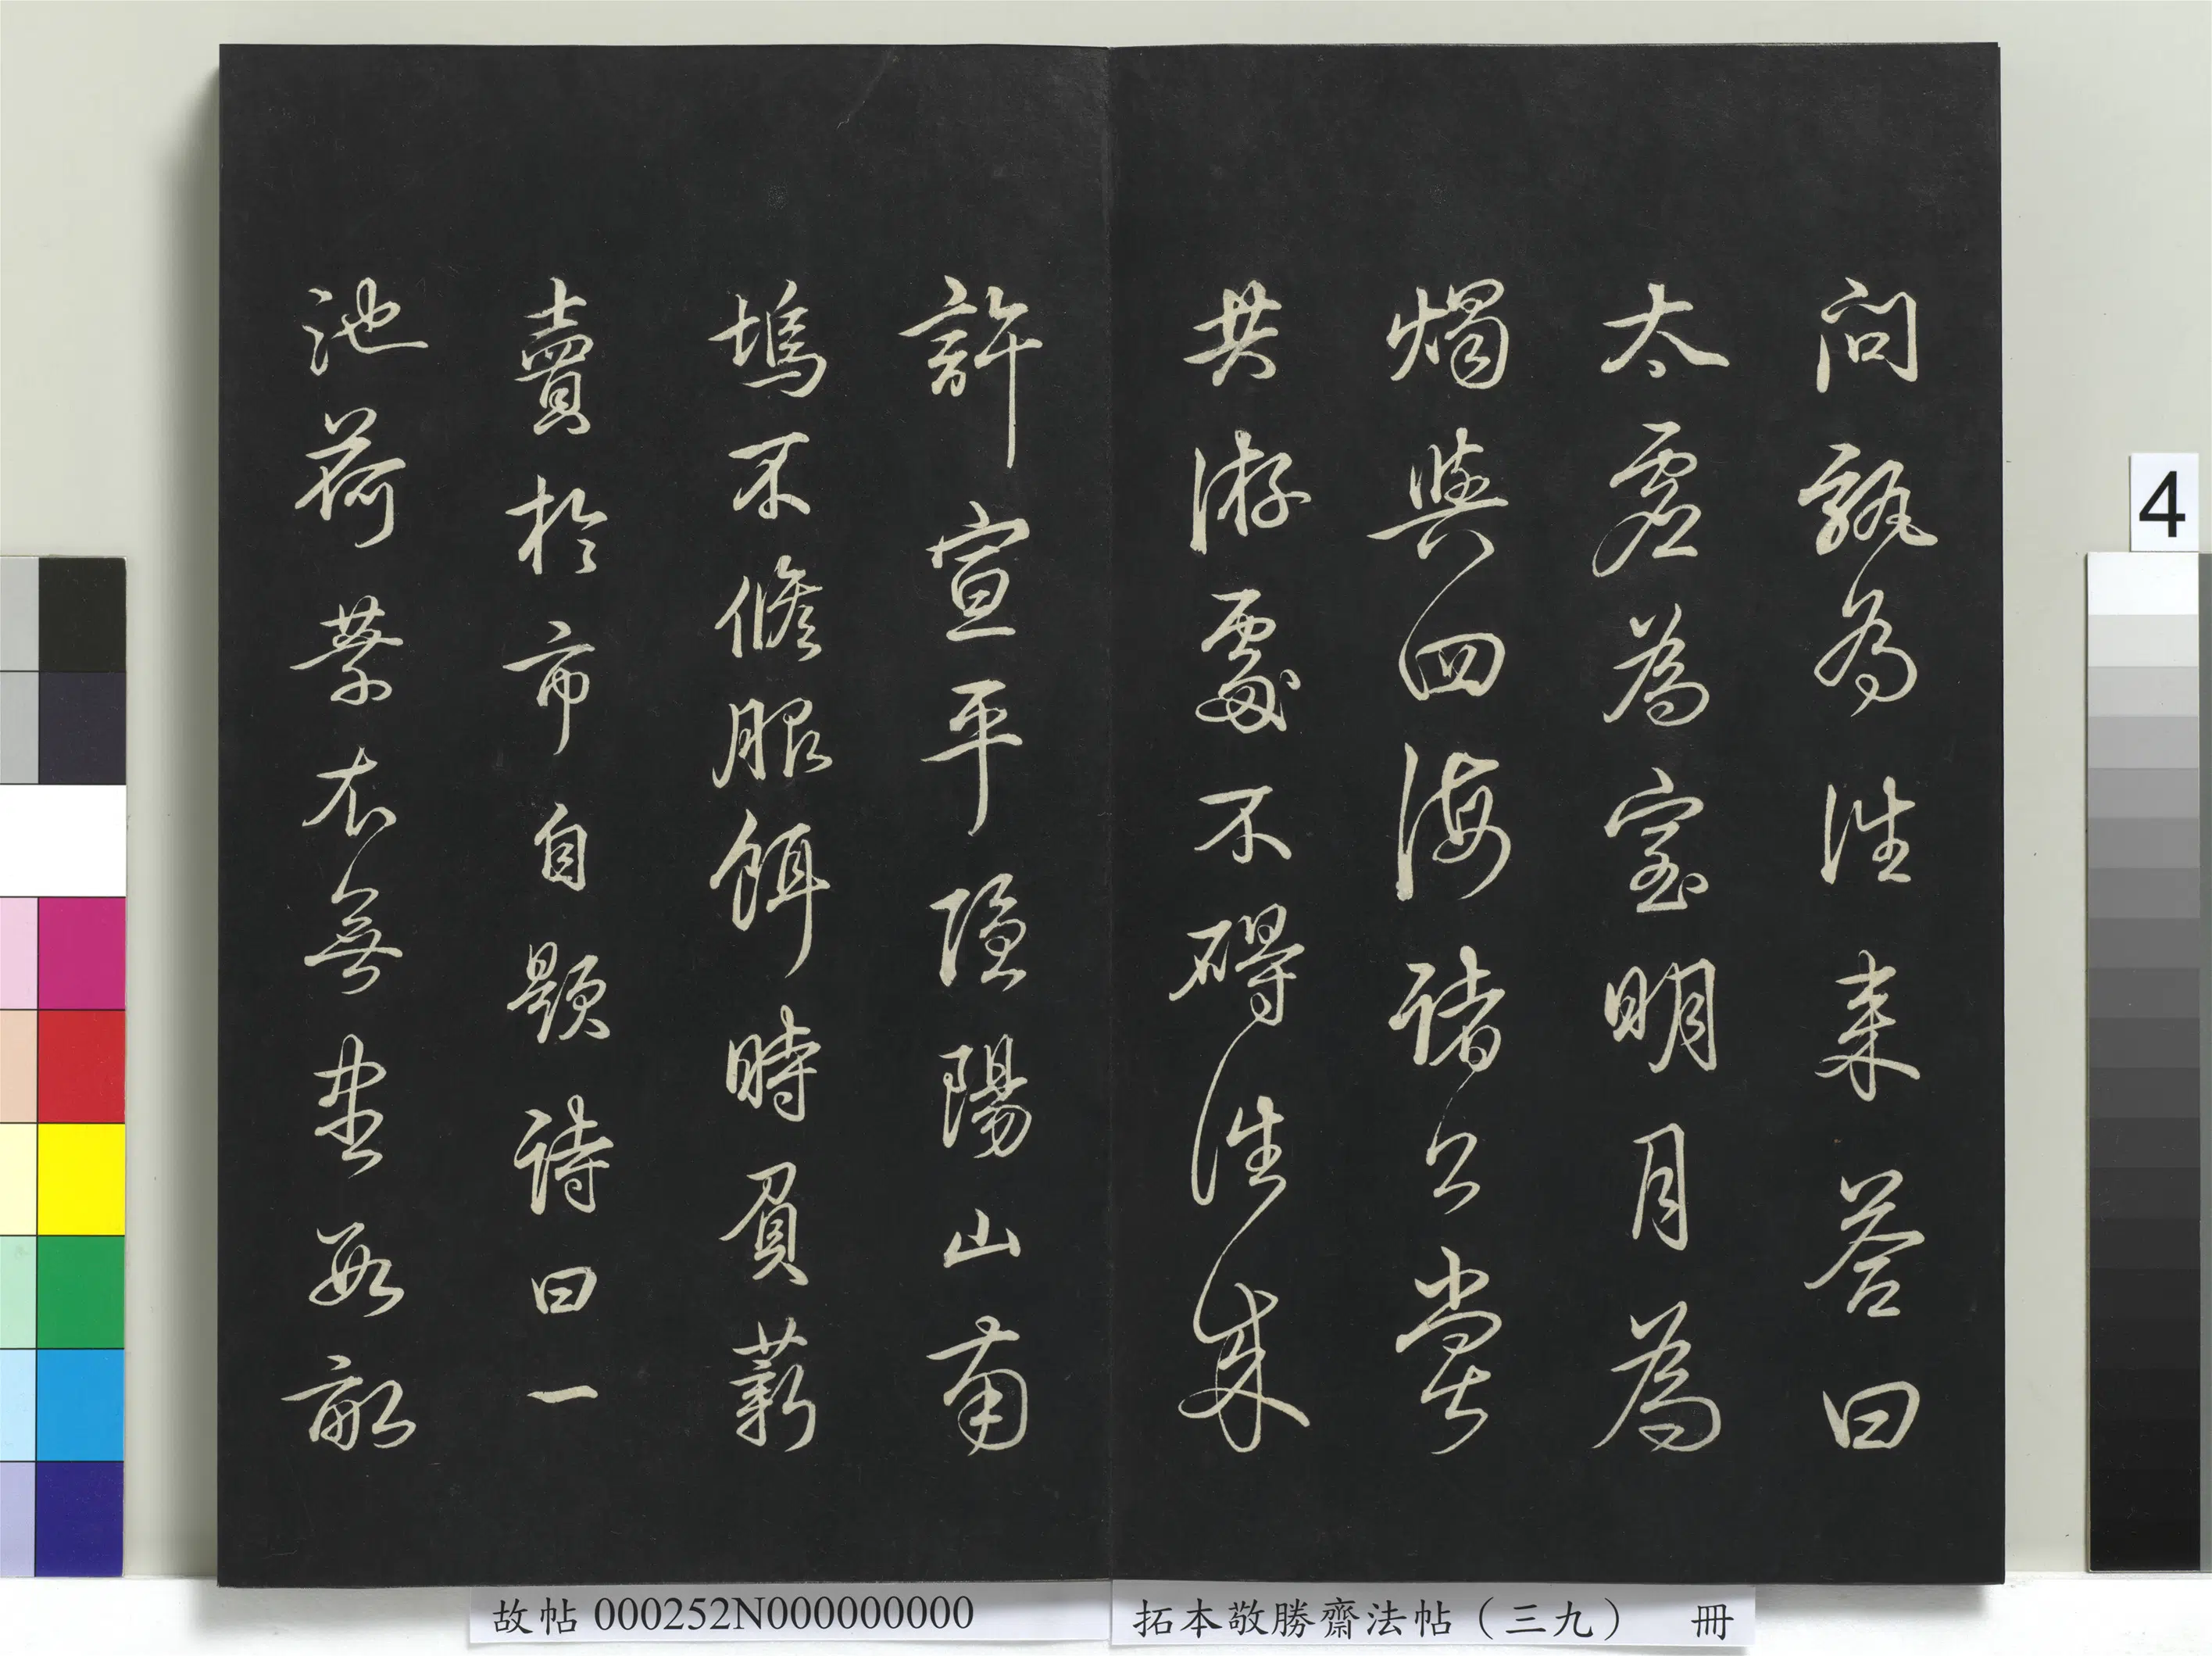 問孰為往来荅曰
太虛為室明月為
燭與四海諸公嘗
共游處不碍往来
許宣平隱陽山南
塢不修服餌時負薪
賣於市自題詩曰一
池荷葉衣無盡數畝
4
故帖 000252N000000000
拓本敬勝齋法帖（三九） 冊